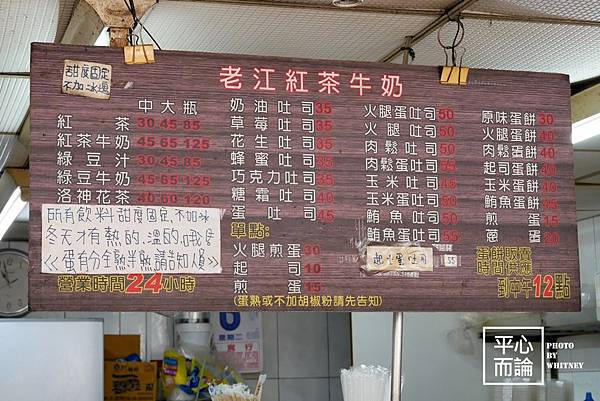 甜度固定
不加冰塊
老江紅茶牛奶
中 大 瓶
紅茶 30 45 85
紅茶牛奶 45 65 125
綠豆汁 45 65 85
綠豆牛奶 45 65 125
洛神花茶 40 60 120
所有飲料甜度固定,不加冰
冬天才有熱的.溫的.哦
<<蛋有分全熟半熟請告知人員>>
營業時間24小時
奶油吐司35
草莓吐司35
花生吐司35
蜂蜜吐司35
巧克力吐司35
糖霜吐司40
蛋吐司40
單點:
火腿煎蛋30
起司10
煎蛋15
(蛋熟或不加胡椒粉請先告知)
火腿蛋吐司50
火腿吐司50
肉鬆吐司50
肉鬆蛋吐司55
玉米吐司45
玉米蛋吐司50
鮪魚吐司50
鮪魚蛋吐司55
起司蛋吐司 55
原味蛋餅30
火腿蛋餅40
肉鬆蛋餅40
起司蛋餅40
玉米蛋餅40
鮪魚蛋餅45
煎蛋15
蔥蛋20
蛋餅販賣
時間供應
到中午12點
星期二
平心
而論
PHOTO
BY
WHITNEY